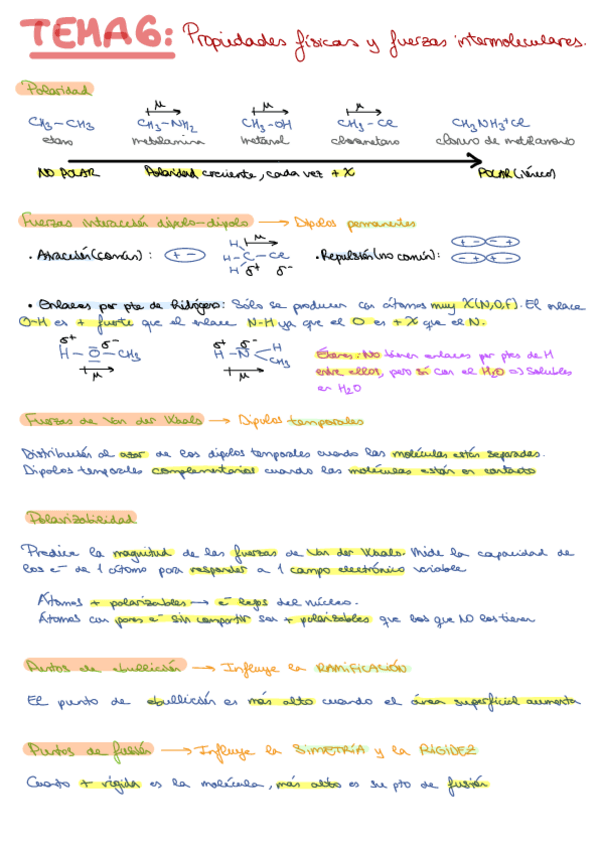 TEMA 6: Propiedades físicas y fuerzas intermoleculares.
Polaridad
μ μ μ
CH₃-CH₃ CH₃-NH₂ CH₃-OH CH₃-Cl CH₃NH₃⁺Cl
etano metilamina metanol clorometano cloruro de metilamonio
NO POLAR Polaridad creciente, cada vez + X POLAR (iónico)
Fuerzas interacción dipolo-dipolo → Dipolos permanentes
· Atracción (común): + - · Repulsión (no común): + - - +
- + + -
μ
H
H-C-Cl
H δ+ δ-
• Enlaces por pte de hidrógeno: Sólo se producen con átomos muy X (N,O,F). El enlace
O-H es + fuerte que el enlace N-H ya que el O es + X que el N.
δ+ δ- δ+ δ-
H-O-CH₃ H-N H CH₃
μ μ
Éteres: NO tienen enlaces por ptes de H
entre ellos, pero sí con el H₂O => Solubles
en H₂O
Fuerzas de Van der Waals → Dipolos temporales
Distribución al azar de los dipolos temporales cuando las moléculas están separadas.
Dipolos temporales complementarios cuando las moléculas están en contacto
Polarizabilidad
Predice la magnitud de las fuerzas de Van der Waals. Mide la capacidad de
los e⁻ de 1 átomo para responder a 1 campo electrónico variable
Átomos + polarizables → e⁻ lejos del núcleo.
Átomos con pares e⁻ sin compartir son + polarizables que los que NO los tienen
Puntos de ebullición → Influye la RAMIFICACIÓN
El punto de ebullición es más alto cuando el área superficial aumenta
Puntos de fusión → Influye la SIMETRÍA y la RIGIDEZ
Cuanto + rígida es la molécula, más alto es su pto de fusión